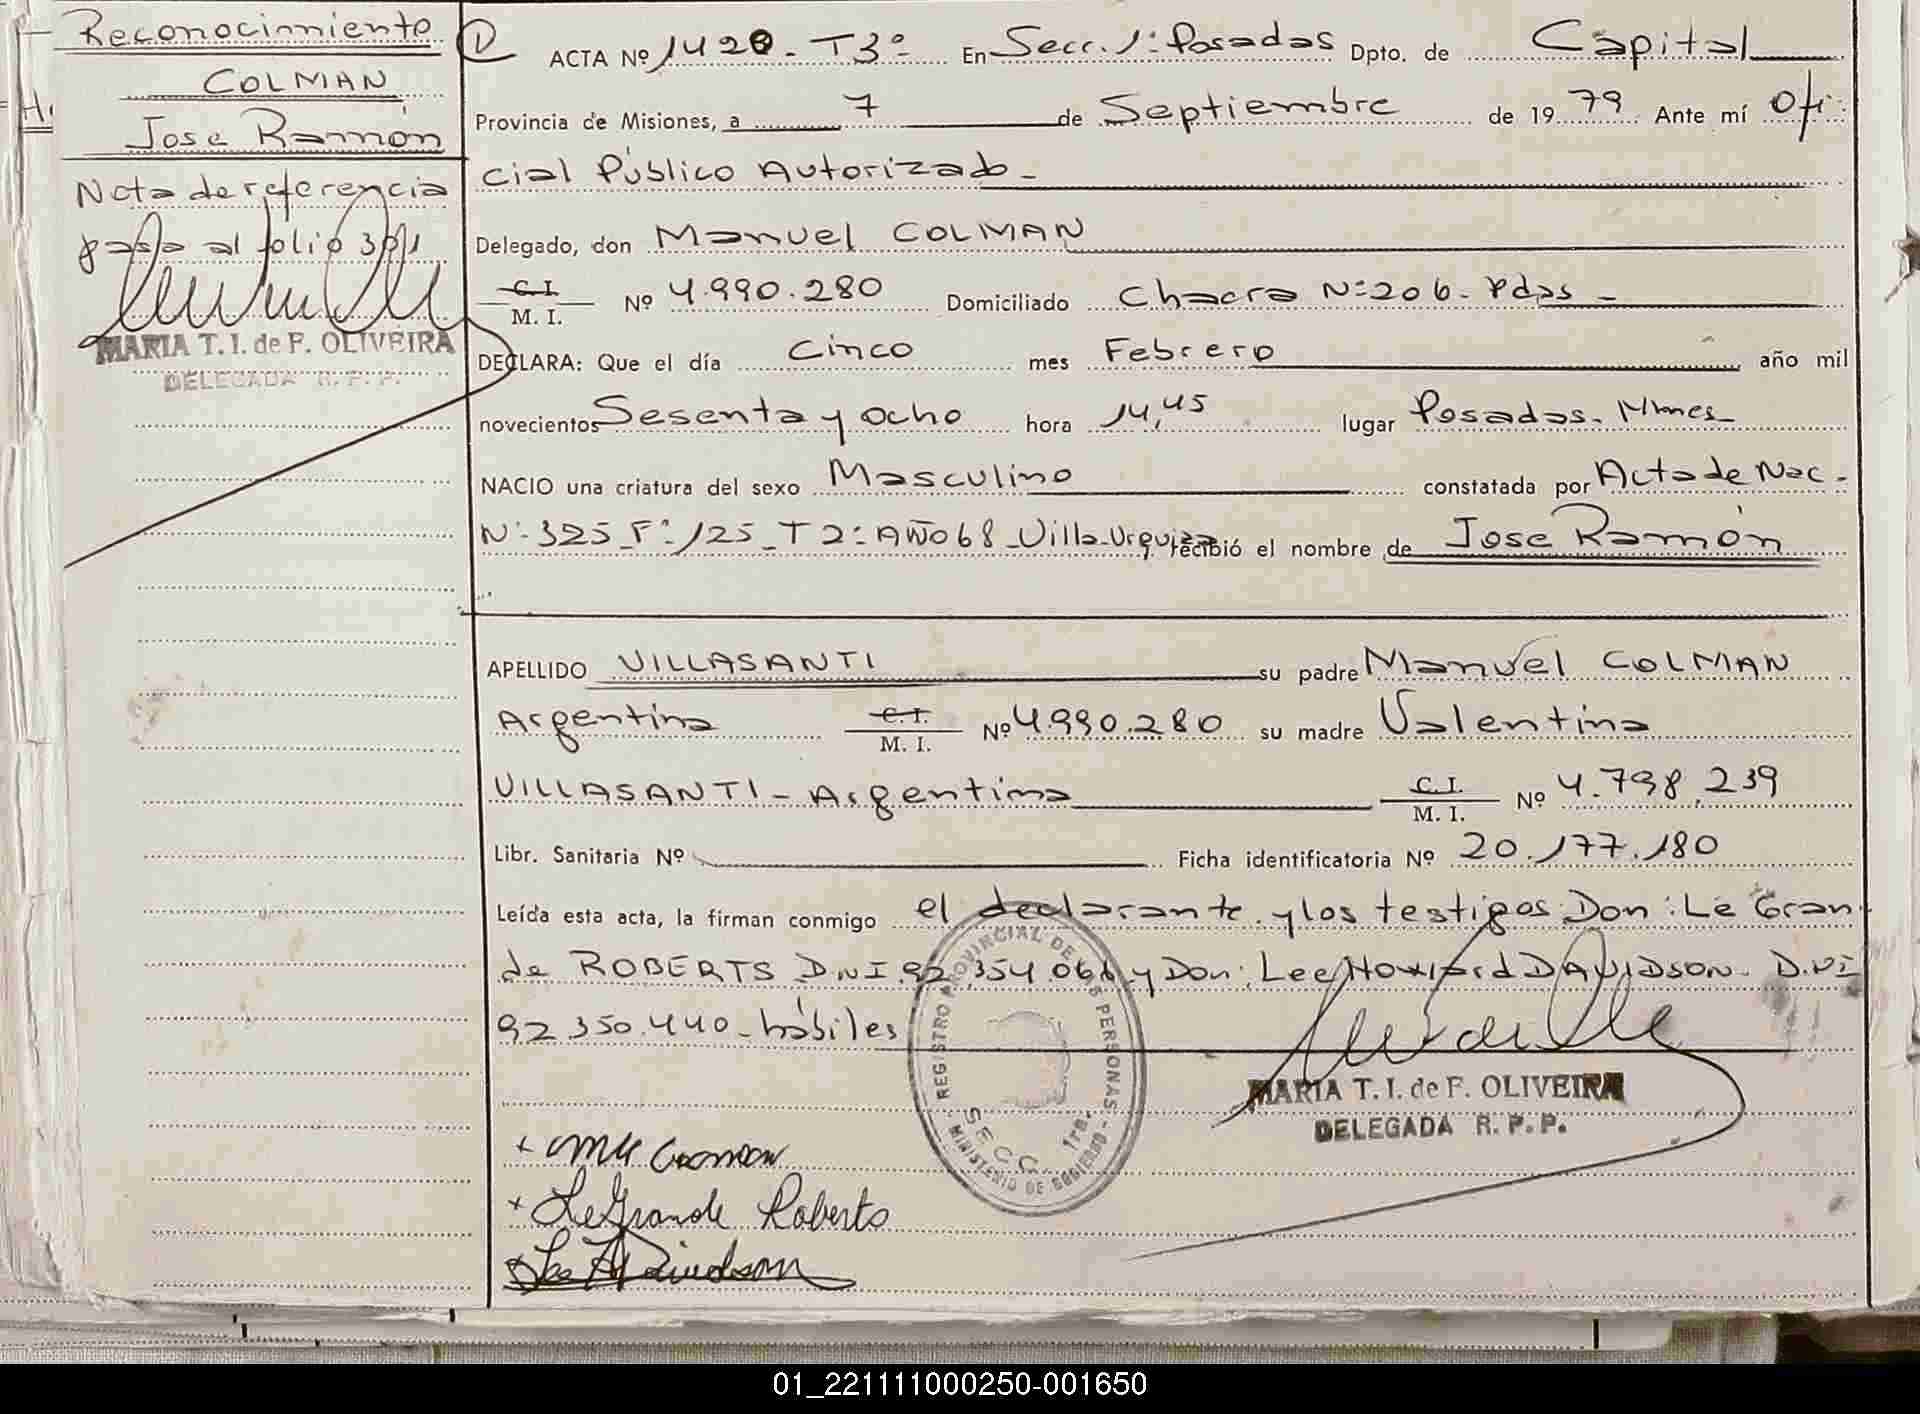 Reconocimiento
COLMAN
José Ramón
Nota de referencia
pasa al folio 301
MARIA T. I. de F. OLIVEIRA
DELEGADA R. P. P.
ACTA Nº 1420 - T3º - En Secc. 1ª Posadas Dpto. de Capital
Provincia de Misiones, a 7 de Septiembre de 1979 Ante mí Ofi
cial Público Autorizado -
Delegado, don Manuel COLMAN
C. I.
M. I. Nº 4.990.280 Domiciliado Chacra Nº 206 - Pdas -
DECLARA: Que el día Cinco mes Febrero año mil
novecientos Sesenta y ocho hora 14,45 lugar Posadas. Mnes
NACIO una criatura del sexo Masculino constatada por Acta de Nac -
Nº 325 Fº 125 T 2º Año 68 Villa Urquiza recibió el nombre de José Ramón
APELLIDO VILLASANTI su padre Manuel COLMAN
Argentina C. I.
M. I. Nº 4.990.280 su madre Valentina
VILLASANTI - Argentina C. I.
M. I. Nº 4.798.239
Libr. Sanitaria Nº Ficha identificatoria Nº 20.177.180
Leída esta acta, la firman conmigo el declarante y los testigos Don: Le Gran
de ROBERTS D.N.I. 92.354.066 y Don: Lee Howard DAVIDSON. D.NI
92.350.440 - hábiles
REGISTRO PROVINCIAL DE LAS PERSONAS
SECC. 1ra.
MINISTERIO DE GOBIERNO
MARIA T. I. de F. OLIVEIRA
DELEGADA R. P. P.
LeGrande Roberts
Lee H Davidson
01_221111000250-001650